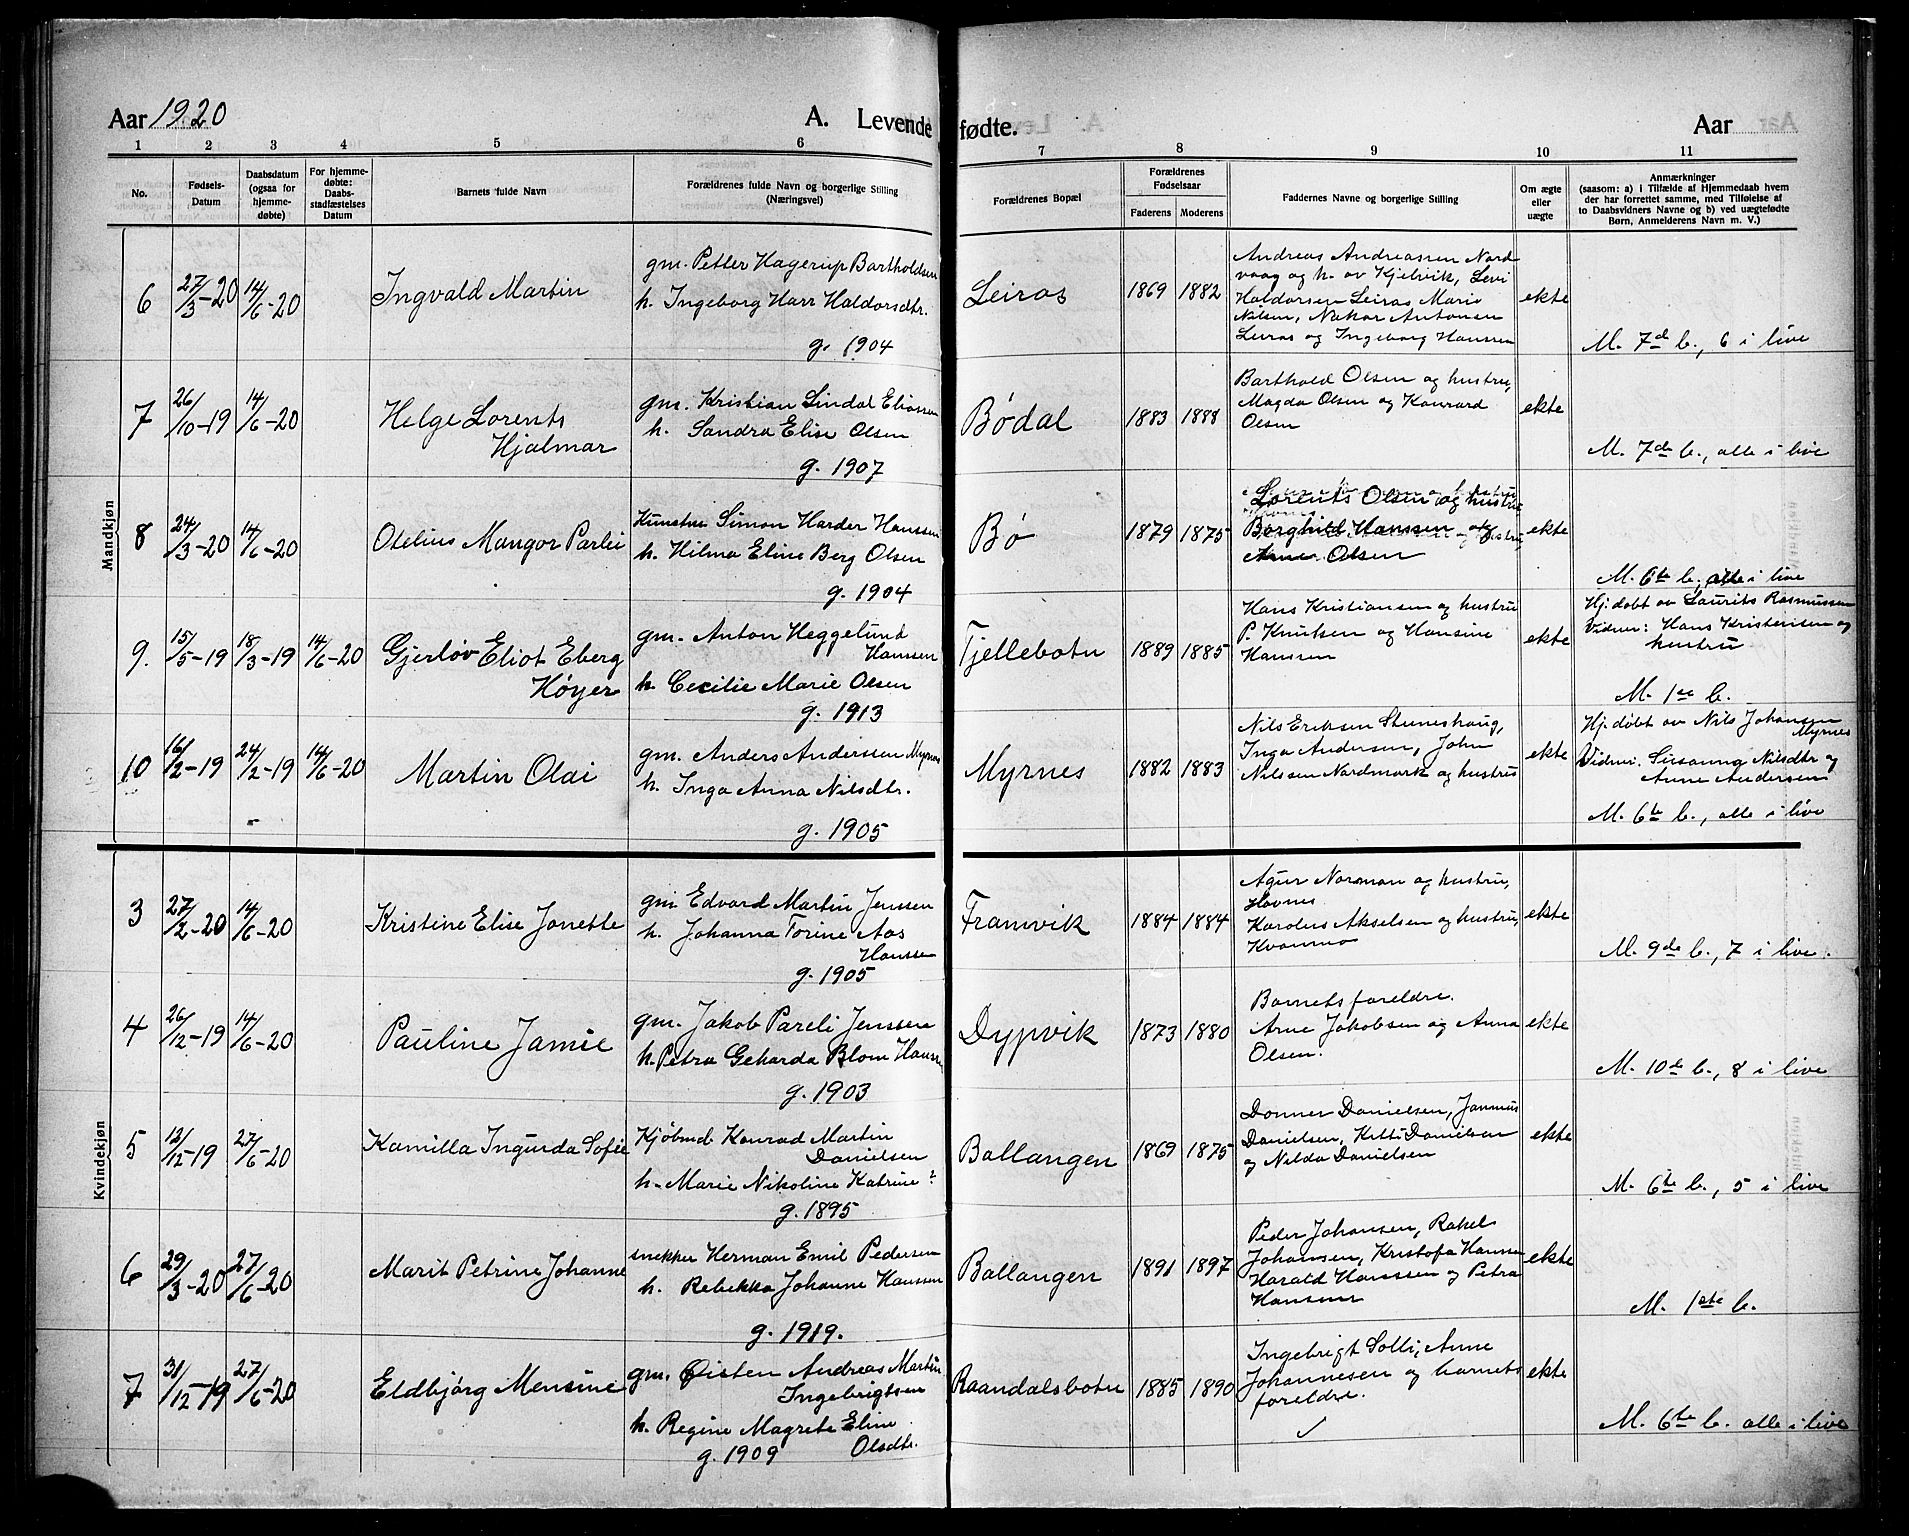 Aar 1920
A. Levende fødte.
Aar
1 2 3 4 5 6 7 8 9 10 11
No.
Fødsels-
Datum
Daabsdatum
(ogsaa for
hjemme-
døbte)
For hjemme-
døbte:
Daabs-
stadfæstelses
Datum
Barnets fulde Navn
Forældrenes fulde Navn og borgerlige Stilling
(Næringsvei)
Forældrenes Bopæl
Forældrenes
Fødselsaar
Faderens Moderens
Faddernes Navne og borgerlige Stilling
Om ægte
eller
uægte
Anmærkninger
(saasom: a) i Tilfælde af Hjemmedaab hvem
der har forrettet samme, med Tilføielse af
to Daabsvidners Navne og b) ved uægtefødte
Børn, Anmelderens Navn m. V.)
Mandkjøn
6 27/3-20 14/6-20 Ingvald Martin
gm. Petter Hagerup Bartholdsen
h. Ingeborg Harr Haldorsdtr.
g. 1904
Leiros 1869 1882
Andreas Andreassen Nord
vaag og h. av Kjelvik, Levi
Haldorsen Leiros Marie
Nilsen, Nekar Antonsen
Leiros og Ingeborg Hanssen
ekte
M. 7de b., 6 i live
7 26/10-19 14/6-20 Helge Lorents
Hjalmar
gm. Kristian Lindal Eliassen
h. Sandra Elise Olsen
g. 1907
Bødal 1883 1888
Barthold Olsen og hustru,
Magda Olsen og Konrard
Olsen
ekte
M. 7de b., alle i live
8 24/3-20 14/6-20 Otelius Mangor Parlei
Kunstm Simon Harder Hanssen
h. Hilma Eline Berg Olsen
g. 1904
Bø 1879 1875
Lorents Olsen og hustru
Borghild Hanssen og
Arne Olsen
ekte
M. 6te b., alle i live
9. 15/5-19 18/3-19 14/6-20 Gjerløv Eliot Eberg
Høyer
gm. Anton Heggelund
Hanssen
h. Cecilie Marie Olsen
g. 1913
Tjellebotn 1889 1885
Hans Kristiansen og hustru
P. Knutsen og Hansine
Hanssen
ekte
Hj. døbt av Laurits Rasmussen
Vidner: Hans Kristensen og
hustru
M. 1ste b.
10 16/2-19 24/2-19 14/6-20 Martin Olai
gm. Anders Anderssen Myrnes
h. Inga Anna Nilsdtr.
g. 1905
Myrnes 1882 1883
Nils Eriksen Steneshaug,
Inga Andersen, John
Nilssen Nordmark og hustru
ekte
Hj. døbt av Nils Johansen
Myrnes
Vidner: Susanna Nilsdtr og
Anne Andersen
M. 6te b., alle i live
Kvindekjøn
3 27/2-20 14/6-20 Kristine Elise Jonette
gm Edvard Martin Jenssen
h. Johanna Torine Aas
Hanssen
g. 1905
Framvik 1884 1884
Agur Norman og hustru,
Havnes
Karolus Akselsen og hustru,
Kvanmo
ekte
M. 9de b., 7 i live.
4 26/12-19 14/6-20 Pauline Jamie
gm. Jakob Pareli Jenssen
h. Petra Geharda Blom Hansen
g. 1903
Dypvik 1873 1880
Barnets foreldre.
Arne Jakobsen og Anna
Olsen.
ekte
M. 10de b., 8 i live
5 12/12-19 27/6-20 Kamilla Ingunda Sofie
Kjøbmd Konrad Martin
Danielsen
h. Marie Nikoline Katrine?
g. 1895
Ballangen 1869 1875
Donner Danielsen, Janmus
Danielsen, Kitti Danielsen
og Nilda Danielsen
ekte
M. 6te b., 5 i live
6 29/3-20 27/6-20 Marit Petrine Johanne
snekker Herman Emil Pedersen
h. Rebekka Johanne Hanssen
g. 1919.
Ballangen 1891 1897
Peder Johansen, Rakel
Johansen, Kristofa Hanssen
Harald Hanssen og Petra
Hanssen
ekte
M. 1ste b.
7 31/12-19 27/6-20 Eldbjørg Mensine
gm. Øisten Andreas Martin
Ingebrigtsen
h. Regine Magrete Eline
Olsdtr.
g. 1909
Raandalsbotn 1885 1890
Ingebrigt Solli, Anne
Johannesen og barnets
foreldre.
ekte
M. 6te b. alle i live